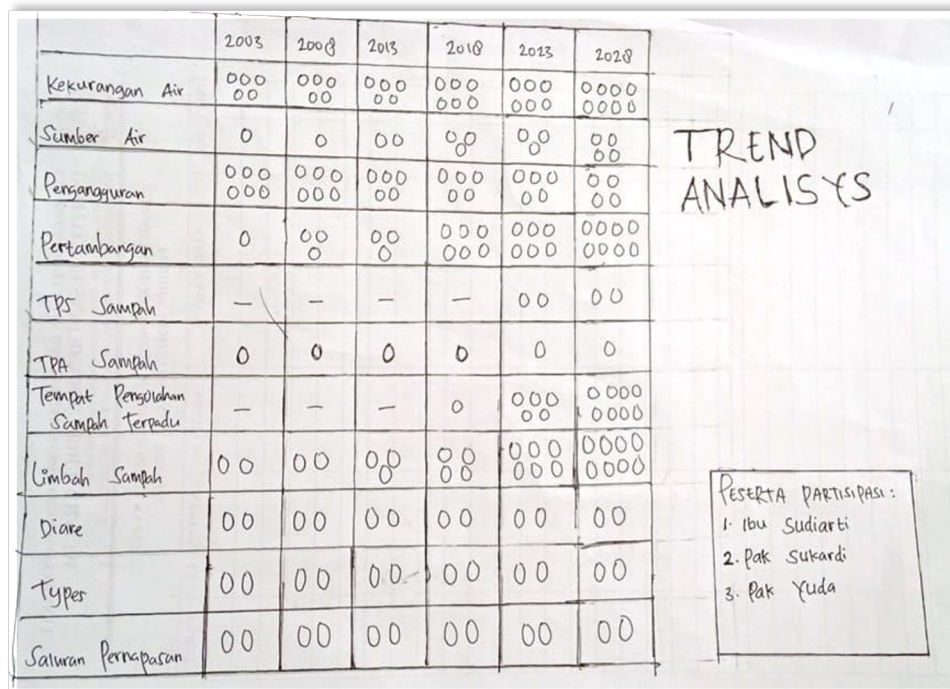 2003 2008 2013 2018 2023 2028
Kekurangan Air 000 00 000 00 000 00 000 000 000 000 0000 0000
Sumber Air 0 0 00 000 000 00 00
Pengangguran 000 000 000 000 000 00 000 00 000 00 00 00
Pertambangan 0 00 0 00 0 000 000 000 000 0000 0000
TPS Sampah – – – – 00 00
TPA Sampah 0 0 0 0 0 0
Tempat Pengolahan
Sampah Terpadu – – – 0 000 00 0000 0000
Limbah Sampah 00 00 00 0 00 00 000 000 0000 0000
Diare 00 00 00 00 00 00
Types 00 00 00 00 00 00
Saluran Pernapasan 00 00 00 00 00 00
TREND
ANALISYS
PESERTA PARTISIPASI :
1. Ibu Sudiarti
2. Pak Sukardi
3. Pak Yuda